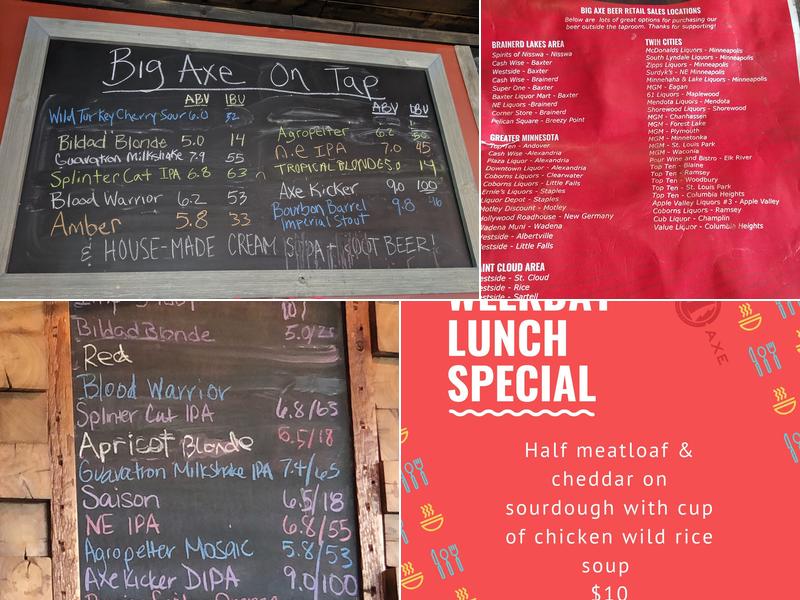 Big Axe On Tap
ABV IBU
Wild Turkey Cherry Sour 6.0 32
Bildad Blonde 5.0 14
Guavatron Milkshake 7.9 55
Splinter Cat IPA 6.8 63
Blood Warrior 6.2 53
Amber 5.8 33
ABV IBU
Agropelter 6.2 50
n.e IPA 7.0 45
TROPICAL BLONDE 5.0 14
Axe Kicker 9.0 100
Bourbon Barrel
Imperial Stout 9.8 46
& HOUSE-MADE CREAM SODA + ROOT BEER!
BIG AXE BEER RETAIL SALES LOCATIONS
Below are lots of great options for purchasing our
beer outside the taproom. Thanks for supporting!
BRAINERD LAKES AREA
Spirits of Nisswa - Nisswa
Cash Wise - Baxter
Westside - Baxter
Cash Wise - Brainerd
Super One - Baxter
Baxter Liquor Mart - Baxter
NE Liquors -Brainerd
Corner Store - Brainerd
Pelican Square - Breezy Point
GREATER MINNESOTA
Top Ten - Andover
Cash Wise -Alexandria
Plaza Liquor - Alexandria
Downtown Liquor - Alexandria
Coborns Liquors - Clearwater
Coborns Liquors - Little Falls
Ernie's Liquors - Staples
Liquor Depot - Staples
Motley Discount - Motley
Hollywood Roadhouse - New Germany
Wadena Muni - Wadena
Westside - Albertville
Westside - Little Falls
SAINT CLOUD AREA
Westside - St. Cloud
Westside - Rice
Westside - Sartell
TWIN CITIES
McDonalds Liquors - Minneapolis
South Lyndale Liquors - Minneapolis
Zipps Liquors - Minneapolis
Surdyk's - NE Minneapolis
Minnehaha & Lake Liquors - Minneapolis
MGM - Eagan
61 Liquors - Maplewood
Mendota Liquors - Mendota
Shorewood Liquors - Shorewood
MGM - Chanhassen
MGM - Forest Lake
MGM - Plymouth
MGM - Minnetonka
MGM - St. Louis Park
MGM - Waconia
Pour Wine and Bistro - Elk River
Top Ten - Blaine
Top Ten - Ramsey
Top Ten - Woodbury
Top Ten - St. Louis Park
Top Ten - Columbia Heights
Apple Valley Liquors #3 - Apple Valley
Coborns Liquors - Ramsey
Cub Liquor - Champlin
Value Liquor - Columbia Heights
Bildad Blonde 5.0/25
Red
Blood Warrior
Splinter Cat IPA 6.8/65
Apricot Blonde 5.5/18
Guavatron Milkshake IPA 7.4/65
Saison 6.5/18
NE IPA 6.8/55
Agropelter Mosaic 5.8/53
Axe Kicker DIPA 9.0/100
WEEKDAY
LUNCH
SPECIAL
AXE
Half meatloaf &
cheddar on
sourdough with cup
of chicken wild rice
soup
$10